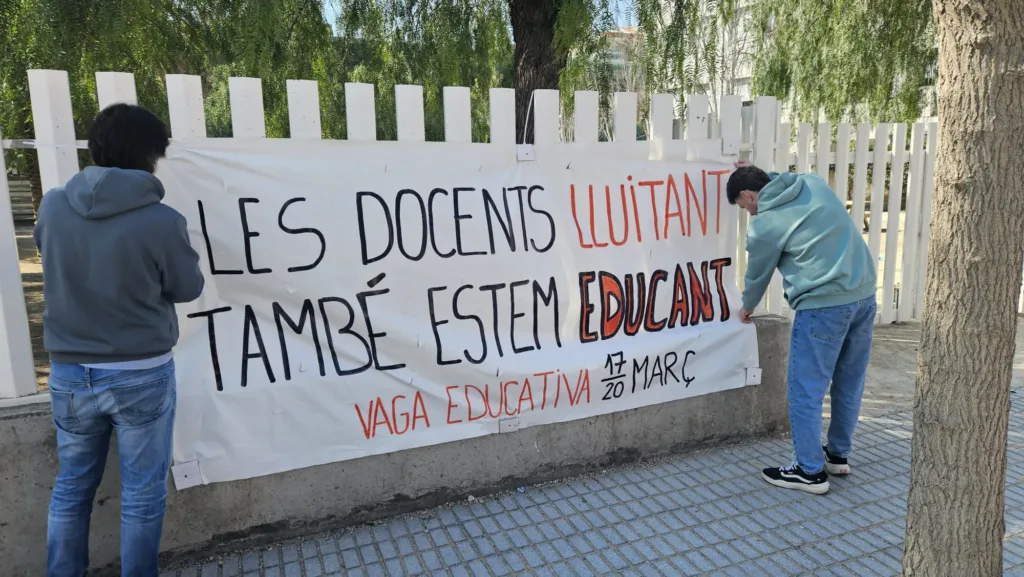 LES DOCENTS LLUITANT
TAMBÉ ESTEM EDUCANT
VAGA EDUCATIVA 17/20 MARÇ